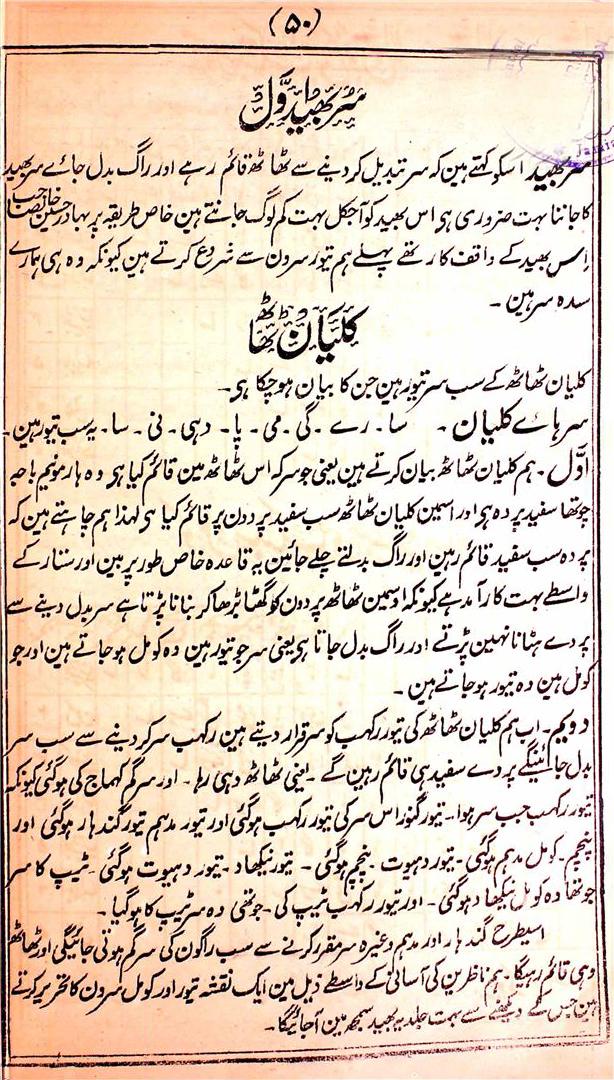 (۵۰)
سر بھید اوّل
سر بھید اسکو کہتے ہین کہ سر تبدیل کر دینے سے ٹھاٹھ قائم رہے اور راگ بدل جاے سر بھید
کا جاننا بہت ضروری ہی اس بھید کو آجکل بہت کم لوگ جانتے ہین خاص طریقہ پر بہادر حسین خانصاحب
اس بھید کے واقف کار تھے پہلے ہم تیور سرون سے شروع کرتے ہین کیونکہ وہ ہی ہمارے
سدہ سر ہین ۔
کلیان ٹھاٹھ
کلیان ٹھاٹھ کے سب سر تیور ہین جن کا بیان ہو چکا ہی۔
سر ہاے کلیان ۔ سا ۔ رے ۔ گی ۔ می ۔ پا ۔ دہی ۔ نی ۔ سا ۔ یہ سب تیور ہین ۔
اوّل ۔ ہم کلیان ٹھاٹھ بیان کرتے ہین یعنی جو سر کہ اس ٹھاٹھ مین قائم کیا ہی وہ ہارمونیم باجہ
چوتھا سفید پردہ ہی اور اسمین کلیان ٹھاٹھ سب سفید پردون پر قائم کیا ہی لہذا ہم چاہتے ہین کہ
پردہ سب سفید قائم رہین اور راگ بدلتے چلے جائین یہ قاعدہ خاص طور پر بین اور ستار کے
واسطے بہت کار آمد ہے کیونکہ اوسمین ٹھاٹھ پردون کو گھٹا بڑھا کر بنانا پڑتا ہے سر بدل دینے سے
پردے ہٹانا نہین پڑتے اور راگ بدل جاتا ہی یعنی سر جو تیور ہین وہ کومل ہو جاتے ہین اور جو
کومل ہین وہ تیور ہو جاتے ہین ۔
دویم ۔ اب ہم کلیان ٹھاٹھ کی تیور رکہب کو سر قرار دیتے ہین رکہب سر کر دینے سے سب سر
بدل جائینگے پردے سفید ہی قائم رہین گے ۔ یعنی ٹھاٹھ وہی رہا ۔ اور سرگم کہماج کی ہوگئی کیونکہ
تیور رکہب جب سر ہوا ۔ تیور گندھار اس سر کی تیور رکہب ہوگئی اور تیور مدہم تیور گندہار ہوگئی اور
پنچم ۔ کومل مدہم ہوگئی ۔ تیور دہیوت ۔ پنچم ہوگئی ۔ تیور نیکھاد ۔ تیور دہیوت ہوگئی ۔ ٹیپ کا سر
جو تھا وہ کومل نیکھاد ہوگئی ۔ اور تیور رکہب ٹیپ کی ۔ جو تھی وہ سر ٹیپ کا ہوگیا ۔
اسیطرح گندہار اور مدہم وغیرہ سر مقرر کرنے سے سب راگون کی سرگم ہوتی جائیگی اور ٹھاٹھ
وہی قائم رہیگا ۔ ہم ناظرین کی آسانی کے واسطے ذیل مین ایک نقشہ تیور اور کومل سرون کا تحریر کرتے
ہین جس کے دیکھنے سے بہت جلد یہ بھید سمجھ مین آجائیگا ۔